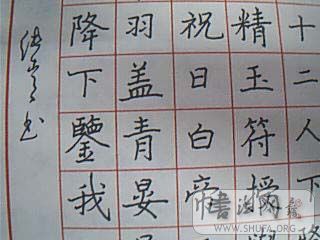 十二人下
精玉符授
祝日白帝
羽盖青晏
降下鑒我
書法网
WWW.SHUFA.ORG